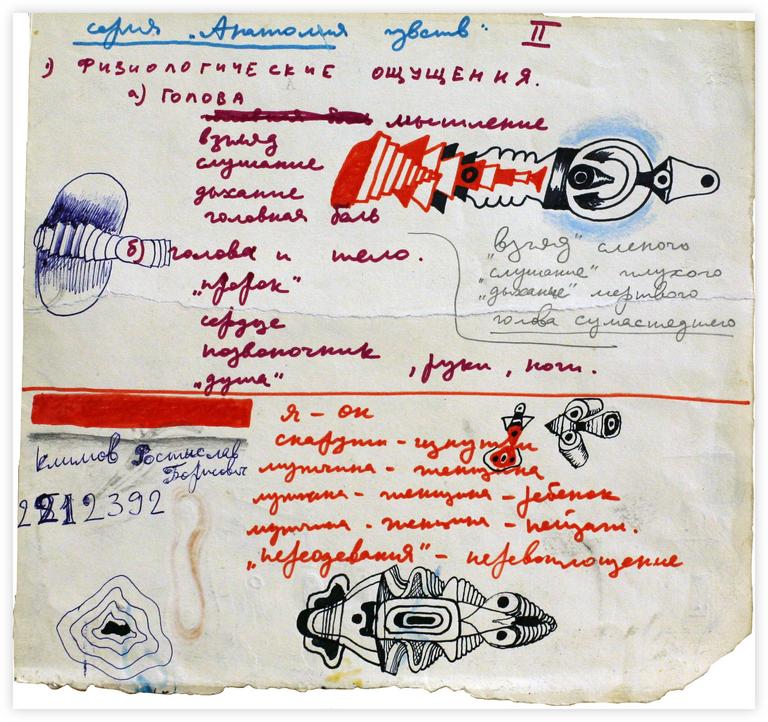 серия „Анатомия чувств" II
1) ФИЗИОЛОГИЧЕСКИЕ ОЩУЩЕНИЯ.
а) ГОЛОВА
мышление
взгляд
слушание
дыхание
головная боль
б) голова и тело.
„взгляд" слепого
„слушание" глухого
„дыхание" мертвого
голова сумасшедшего
сердце
позвоночник
„душа" , руки, ноги.
я - он
снаружи - изнутри
мужчина - женщина
мужчина - женщина - ребенок
мужчина - женщина - пейзаж.
„переодевания" - перевоплощение
Климов Ростислав
Борисович
2212392